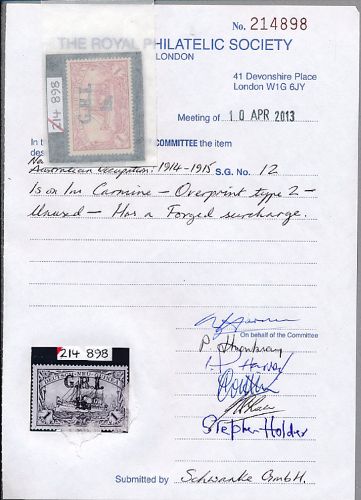 No. 214898
THE ROYAL PHILATELIC SOCIETY
LONDON
41 Devonshire Place
London W1G 6JY
Meeting of 10 APR 2013
214 898
G.R.I.
1
In th
COMMITTEE the item
des
Australian Occupation: 1914-1915 S.G. No. 12
1s on 1m Carmine - Overprint type 2 -
Unused - Has a Forged surcharge.
On behalf of the Committee
214 898
G.R.I.
1
1
Stephen Holder
Submitted by Schwanke GmbH.